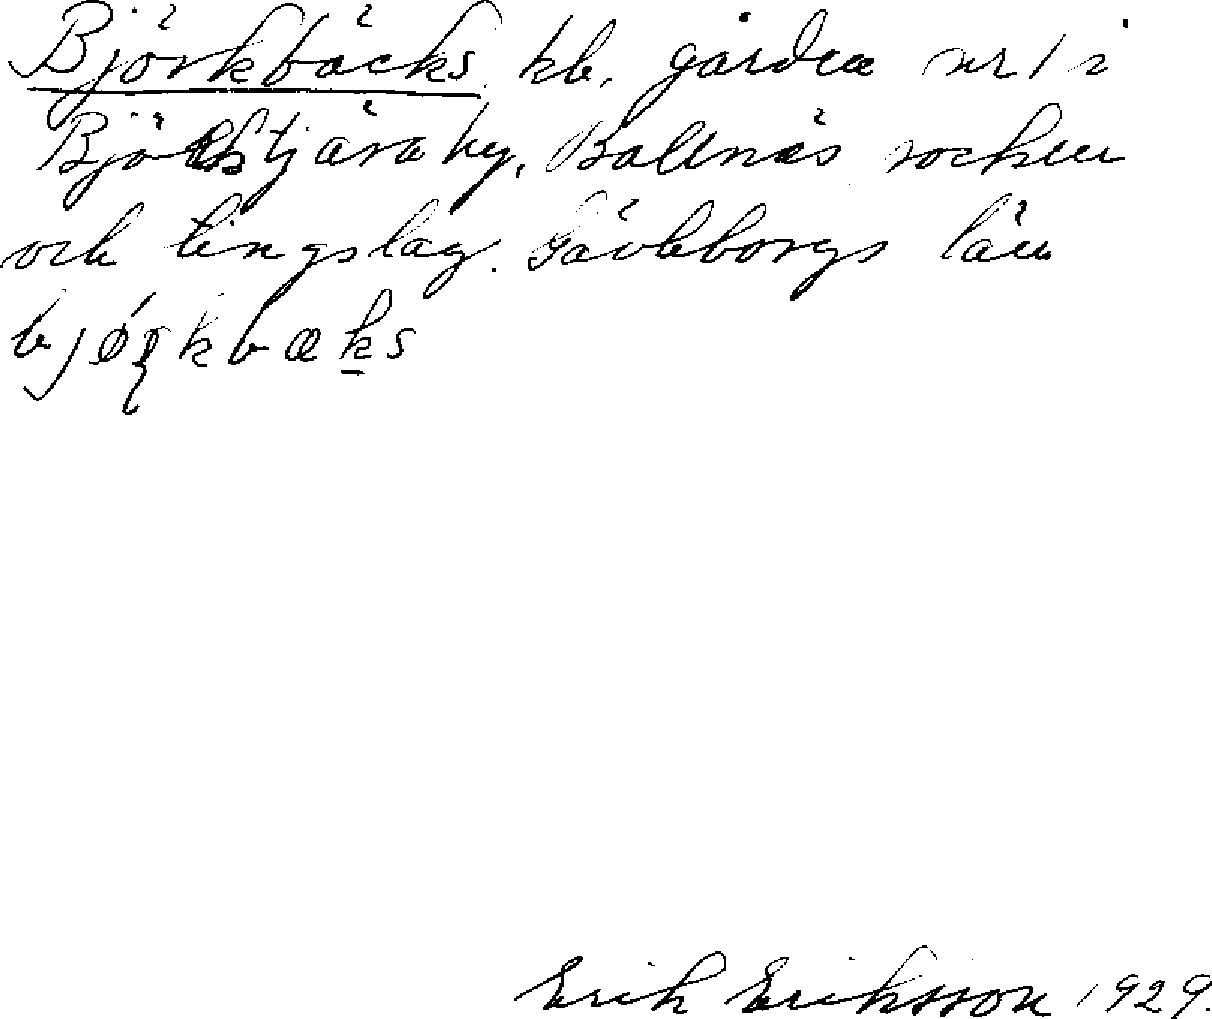 Björkbäcks kb. gården nr 1 i
Björktjära by, Bollnäs socken
och tingslag. Gävleborgs län
bjørkbæks
Erik Eriksson 1929.